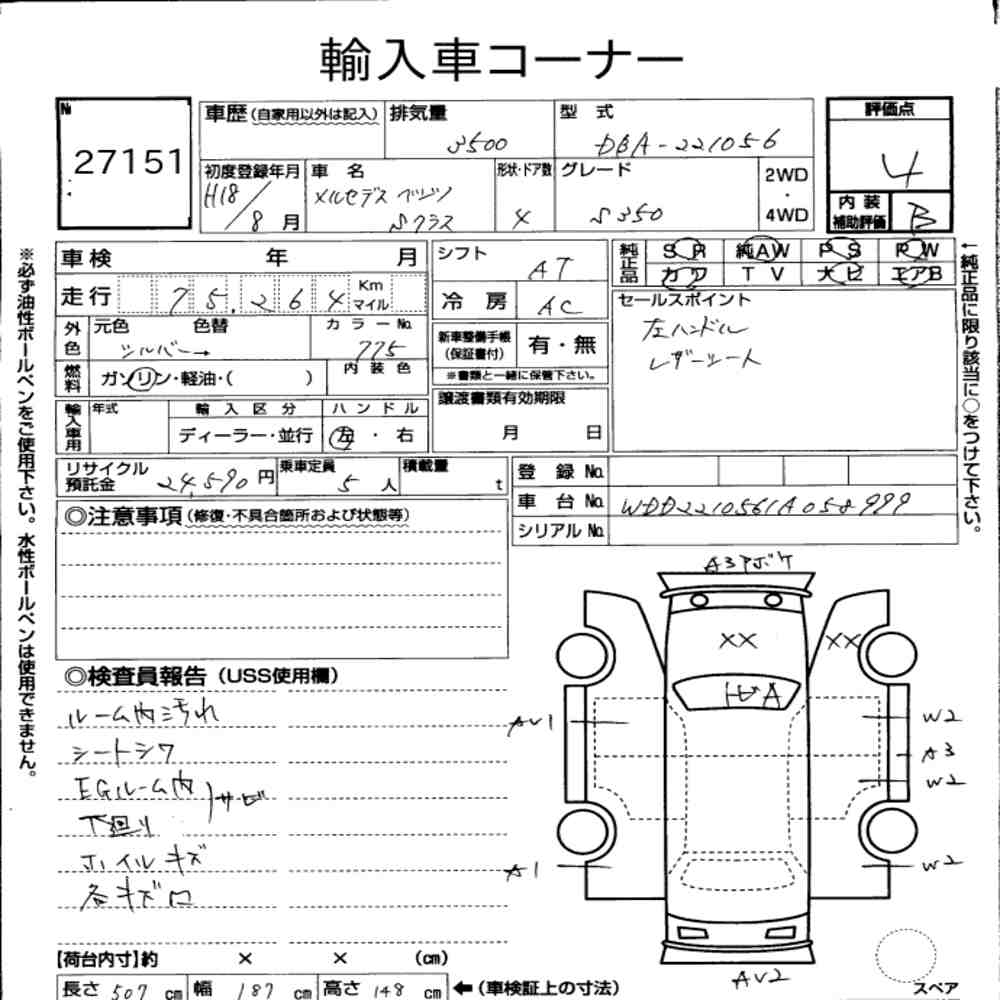 輸入車コーナー
№ 27151
車歴 (自家用以外は記入) 排気量 3500 型式 DBA-221056
評価点 4
内装補助評価 B
初度登録年月 H18/8月 車名 メルセデス ベンツ Sクラス 形状・ドア数 4 グレード S350 2WD・4WD
車検 年 月
走行 75,264 Km マイル
外色 元色 シルバー→ 色替 カラーNo. 775
燃料 ガソリン・軽油・( ) 内装色
輸入車用 年式 輸入区分 ディーラー・並行 ハンドル 左・右
シフト AT
冷房 AC
新車整備手帳 (保証書付) 有・無
※書類と一緒に保管下さい。
譲渡書類有効期限
月 日
純正品 SR 純AW PS PW
カワ TV ナビ エアB
セールスポイント
左ハンドル
レザーシート
リサイクル預託金 24,590円 乗車定員 5人 積載量 t
登録No.
車台No. WDD2210561A058999
シリアルNo.
◎注意事項 (修復・不具合箇所および状態等)
◎検査員報告 (USS使用欄)
ルーム内汚れ
シートシワ
EGルーム内
下廻り
サビ
ホイルキズ
各キズ凹
A3アボケ
XX
XX
AV1
W2
A3
W2
A1
W2
AV2
スペア
【荷台内寸】約 × × (cm)
長さ 507 cm 幅 187 cm 高さ 148 cm ←(車検証上の寸法)
※必ず油性ボールペンをご使用下さい。水性ボールペンは使用できません。
←純正品に限り該当に○をつけて下さい。